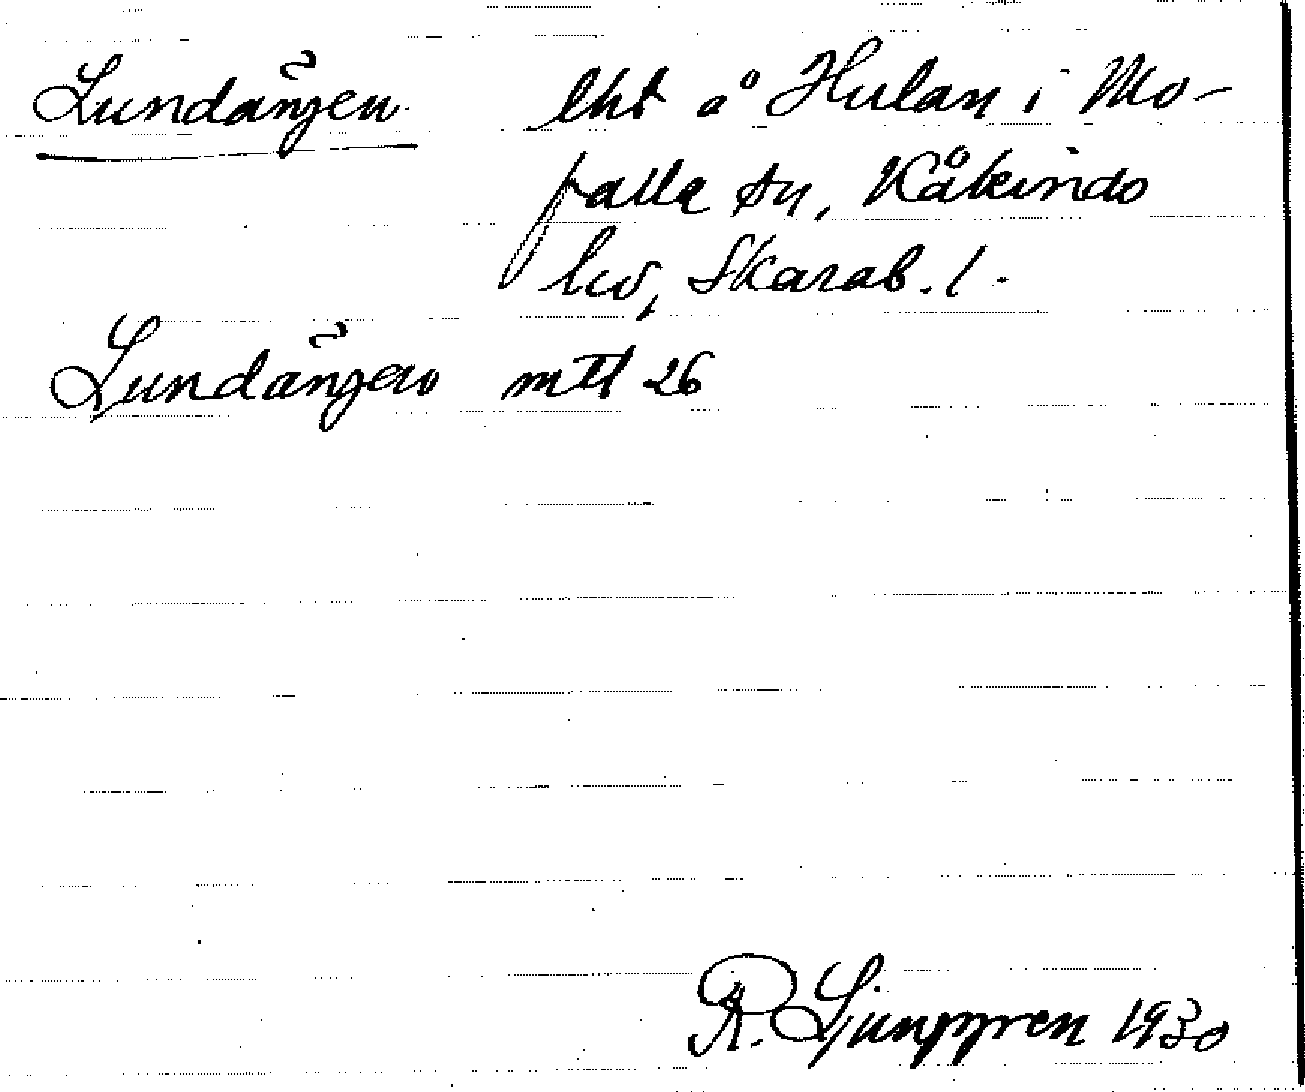 Lundängen lht å Hulan i Mo-
falla sn, Kåkinds
hd, Skarab. l.
Lundängen mtl 26
R. Ljunggren 1930